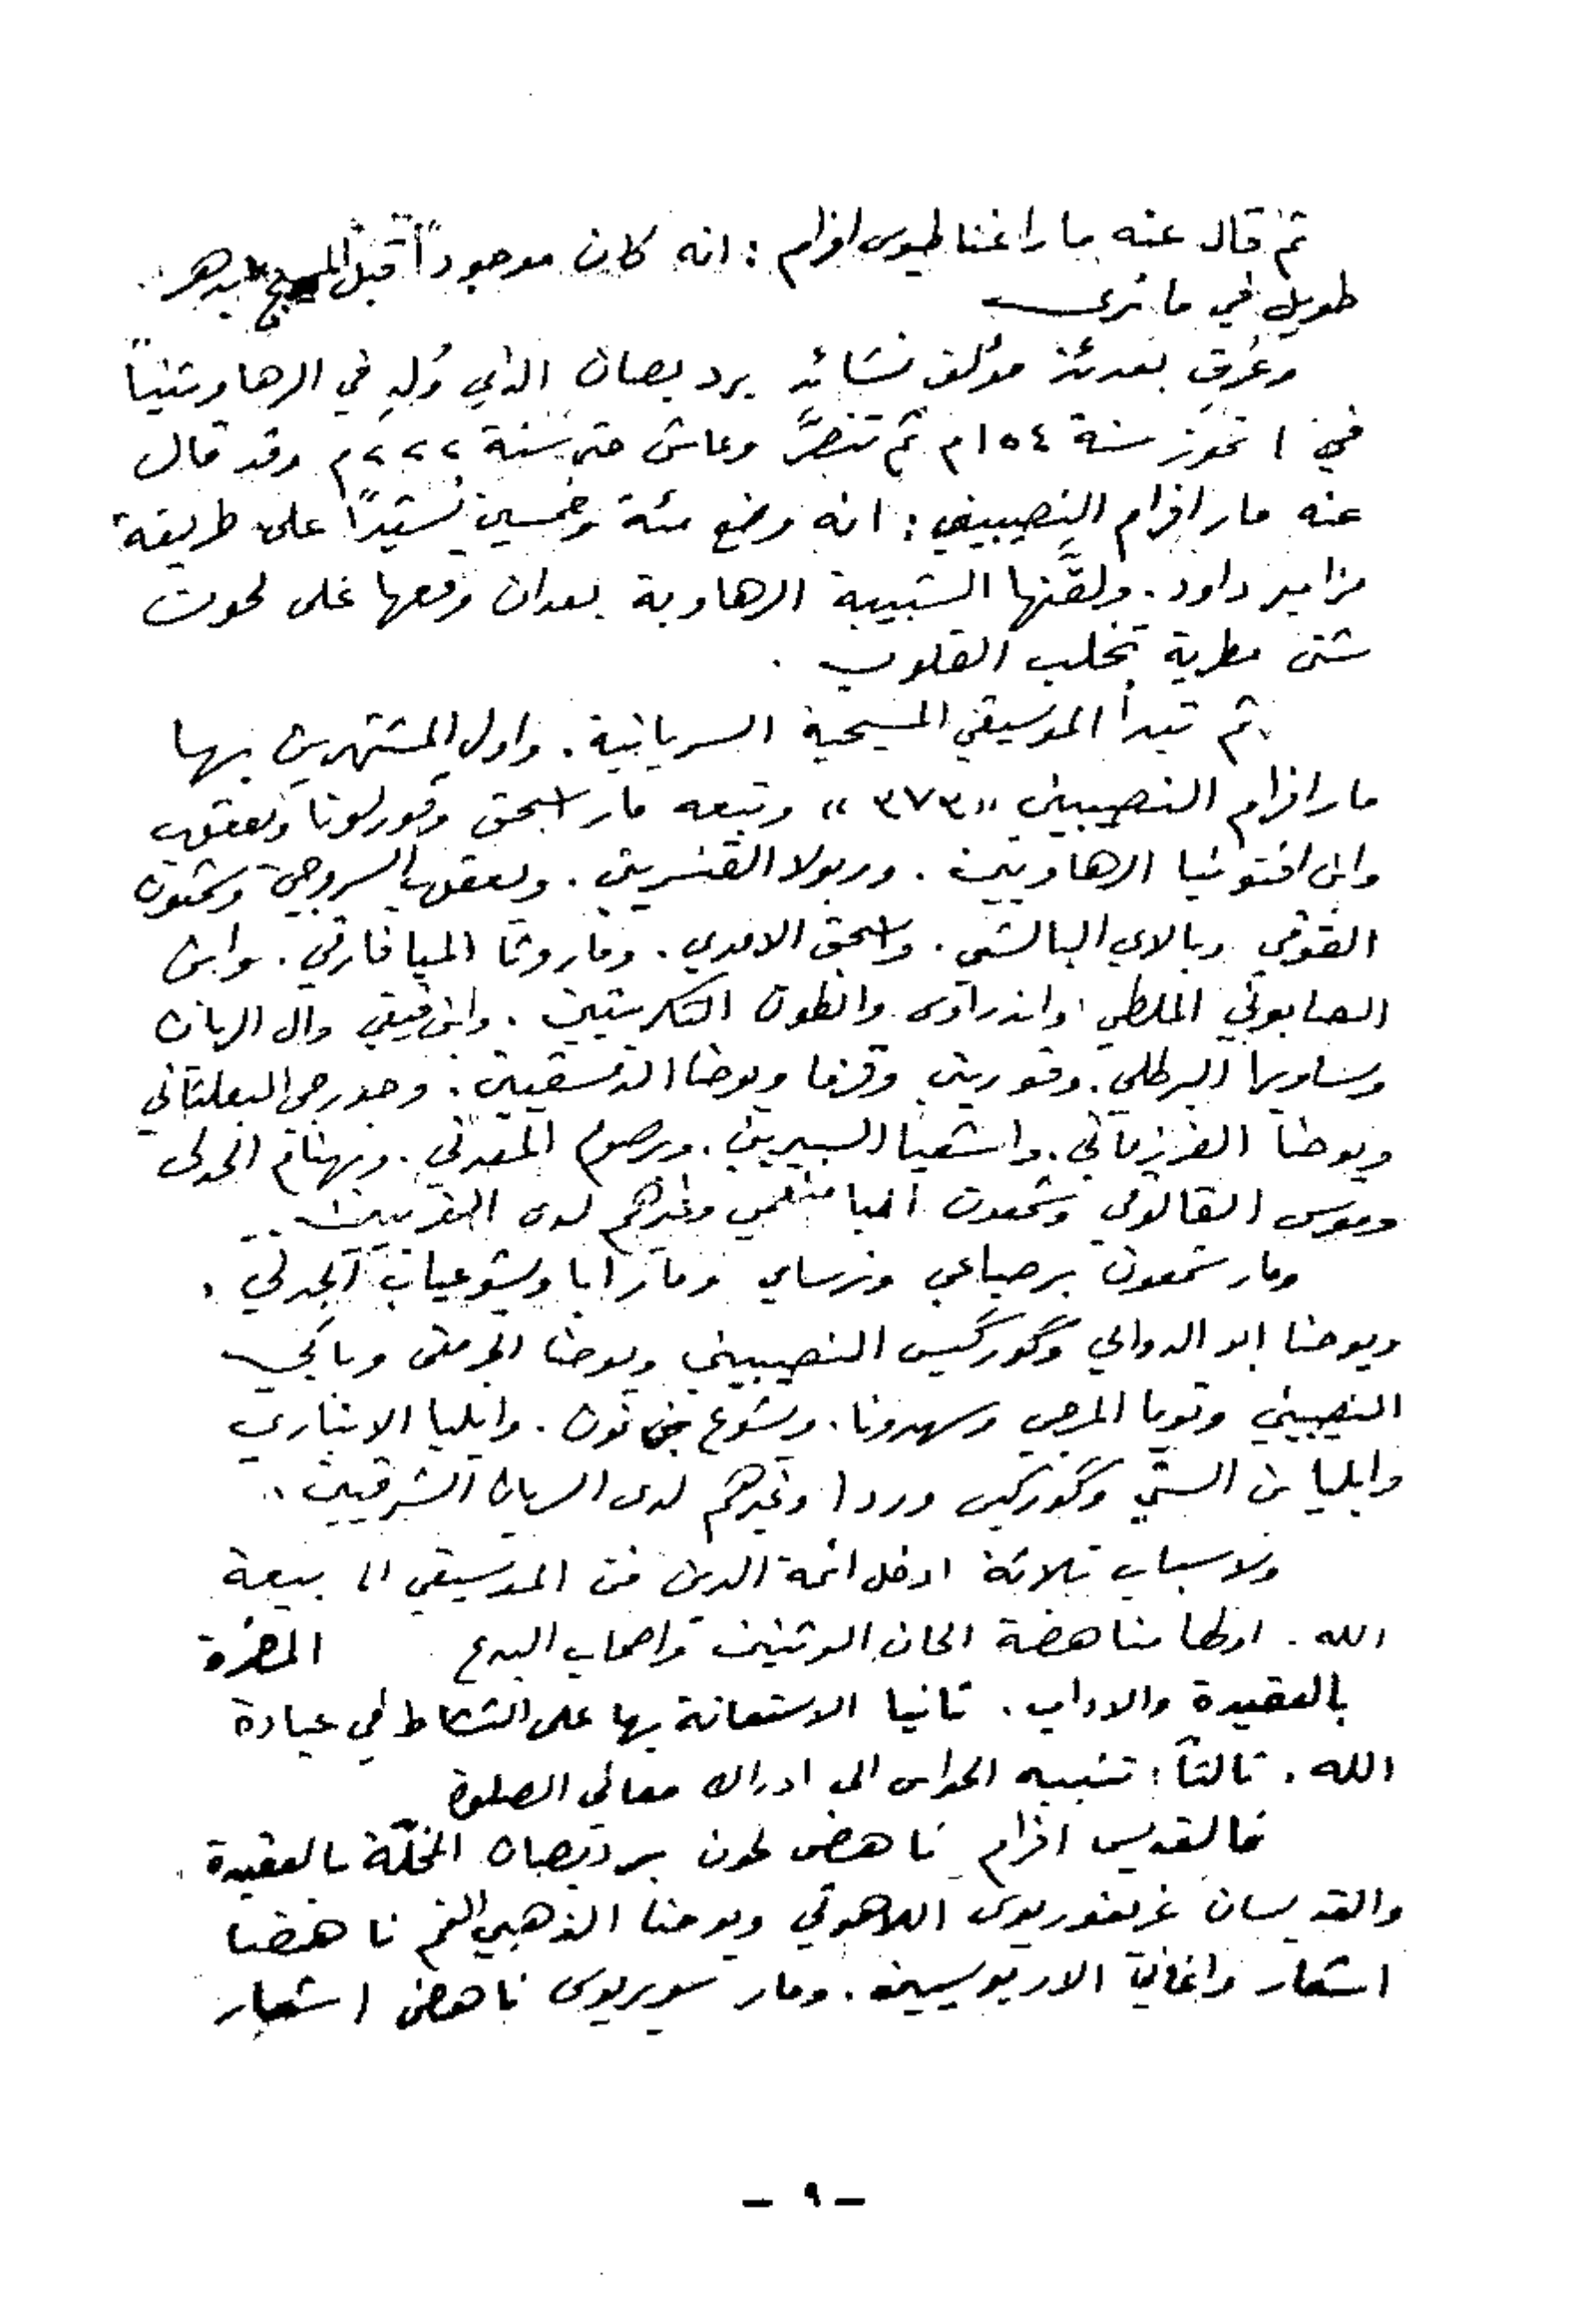 ثم قال عنه مار اغناطيوس افرام : انه كان موجوداً قبل المسيح بدهر
طويل في ما نرى
وعُرف بعدئذ مؤلف نشائد برديصان الذي وُلد في الرها وثنياً
في ١١ تموز سنة ١٥٤م ثم تنصَّر وعاش حتى سنة ٢٢٢م وقد قال
عنه مار افرام النصيبيني : انه وضع مئة وخمسين نشيداً على طريقة
مزامير داود . ولقَّنها الشبيبة الرهاوية بعدان وقعها على لحون
شتى مطربة تخلب القلوب .
ثم تبدأ الموسيقى المسيحية السريانية . واول المشتهرين بها
مار افرام النصيبيني «٣٧٣» وتبعه مار اسحق وقورلونا ويعقوب
وابن افتونيا الرهاويين . وربولا القنسريني . ويعقوب السروجي وشمعون
القوقي وبالاي البالشي . واسحق الامدي . وماروثا الميافارقي . وابن
الصابوني الملطي واندراوس وانطون التكريتيين . وابن قيقي وال الربان
وساويرا البرطلي . وقوريني وقزما ويوحنا الدمشقيين . وجورجي البعلتاني
ويوحنا الفزرماني . واشعيا السبيريني . وبرصوم المعدني . وبهنام الحدلي
وموسى القالوقي وشمعون المانعمي وغيرهم لدى الغربيين .
ومار شمعون برصباعي ونرساي ومار ابا ويشوعياب الجدلي .
ويوحنا ابو الدوالي وگورگيس النصيبيني ويوحنا الجرمقي وباكي
النصيبيني وتوما المرجي وسهدونا . ويشوع بن نون . وايليا الانباري
وايليا بن السني وگورگيس وردا وغيرهم لدى السريان الشرقيين .
ولاسباب ثلاثة ادخل ائمة الدين فن الموسيقى الى بيعة
الله . اولها مناهضة الحان الوثنيين واصحاب البدع المضرة
بالعقيدة والاداب . ثانيا الاستعانة بها على النشاط في عبادة
الله . ثالثاً : تنبيه الحواس الى ادراك معاني الصلوة
فالقديس افرام ناهض لحون برديصان المخلّة بالعقيدة
والقديسان غريغوريوس اللاهوتي ويوحنا الذهبي الفم ناهضا
اشعار واغاني الاريوسيين . ومار سويريوس ناهض اشعار
– ٩ –